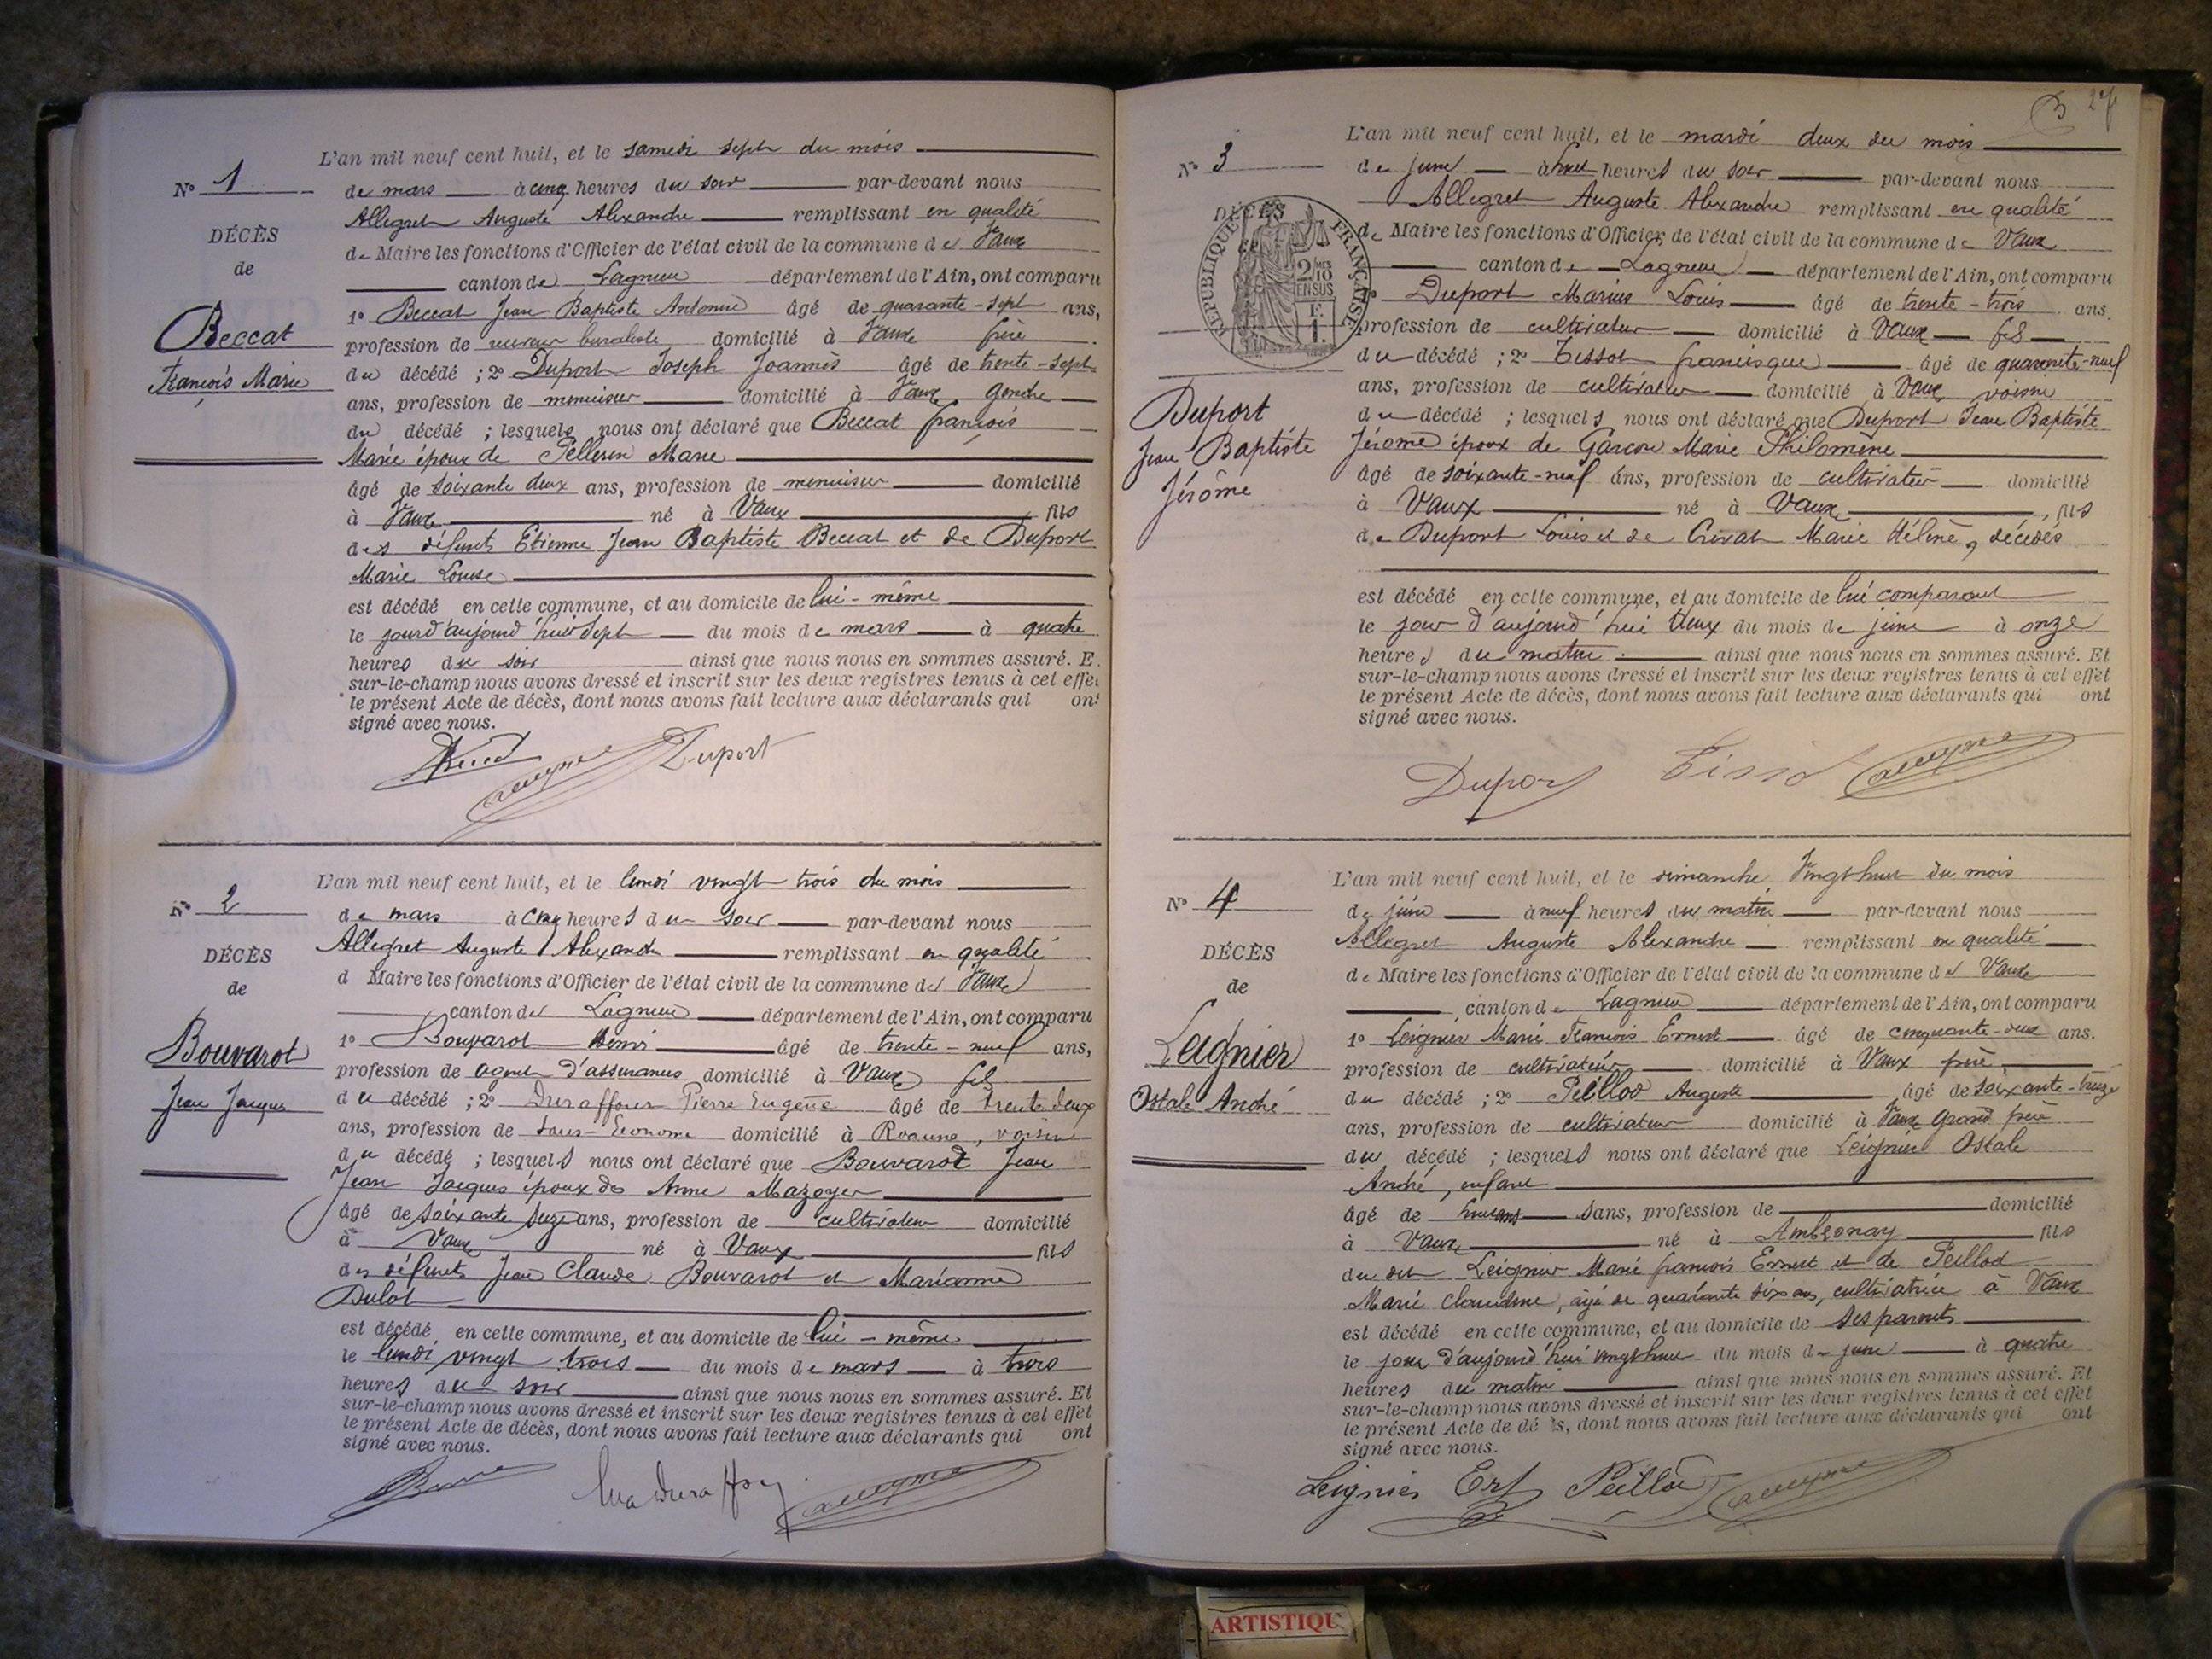 N° 1
DÉCÈS
de
Beccat
François Marie
L'an mil neuf cent huit, et le samedi sept du mois
de mars à cinq heures du soir par-devant nous
Allegret Auguste Alexandre remplissant en qualité
de Maire les fonctions d'Officier de l'état civil de la commune de Vaux
canton de Lagnieu département de l'Ain, ont comparu
1° Beccat Jean Baptiste Antonin âgé de quarante-sept ans,
profession de receveur buraliste domicilié à Vaux frère
du décédé ; 2° Duport Joseph Joannès âgé de trente-sept
ans, profession de menuisier domicilié à Vaux gendre
du décédé ; lesquels nous ont déclaré que Beccat françois
Marie époux de Pellerin Marie
âgé de soixante deux ans, profession de menuisier domicilié
à Vaux né à Vaux fils
des défunts Etienne Jean Baptiste Beccat et de Duport
Marie Louise
est décédé en cette commune, et au domicile de lui-même
le jour d'aujourd'hui sept du mois de mars à quatre
heures du soir ainsi que nous nous en sommes assuré. E
sur-le-champ nous avons dressé et inscrit sur les deux registres tenus à cet effet
le présent Acte de décès, dont nous avons fait lecture aux déclarants qui ont
signé avec nous.
Duport
N° 2
DÉCÈS
de
Bouvarot
Jean Jacques
L'an mil neuf cent huit, et le lundi vingt trois du mois
de mars à cinq heures du soir par-devant nous
Allegret Auguste Alexandre remplissant en qualité
d Maire les fonctions d'Officier de l'état civil de la commune de Vaux
canton de Lagnieu département de l'Ain, ont comparu
1° Bouvarot Denis âgé de trente-neuf ans,
profession de agent d'assurances domicilié à Vaux fils
du décédé ; 2° Duraffour Pierre Eugène âgé de trente deux
ans, profession de sous-Econome domicilié à Roanne, voisin
du décédé ; lesquels nous ont déclaré que Bouvarot Jean
Jean Jacques époux de Anne Mazoyer
âgé de soixante seize ans, profession de cultivateur domicilié
à Vaux né à Vaux fils
des défunts Jean Claude Bouvarot et Marianne
Dulot
est décédé en cette commune, et au domicile de lui-même
le lundi vingt trois du mois de mars à trois
heures du soir ainsi que nous nous en sommes assuré. Et
sur-le-champ nous avons dressé et inscrit sur les deux registres tenus à cet effet
le présent Acte de décès, dont nous avons fait lecture aux déclarants qui ont
signé avec nous.
N° 3
DÉCÈS
RÉPUBLIQUE FRANÇAISE
Duport
Jean Baptiste
Jérôme
L'an mil neuf cent huit, et le mardi deux du mois
de juin à heures du soir par-devant nous
Allegret Auguste Alexandre remplissant en qualité
de Maire les fonctions d'Officier de l'état civil de la commune de Vaux
canton de Lagnieu département de l'Ain, ont comparu
1° Duport Marius Louis âgé de trente-trois ans.
profession de cultivateur domicilié à Vaux fils
du décédé ; 2° Tissot françisque âgé de quarante-neuf
ans, profession de cultivateur domicilié à Vaux voisin
du décédé ; lesquels nous ont déclaré que Duport Jean Baptiste
Jérome époux de Garcon Marie Philomène
âgé de soixante-neuf ans, profession de cultivateur domicilié
à Vaux né à Vaux, fils
de Duport Louis et de Crivat Marie Hélène, décédés
est décédé en cette commune, et au domicile de lui comparant
le jour d'aujourd'hui deux du mois de juin à onze
heures du matin ainsi que nous nous en sommes assuré. Et
sur-le-champ nous avons dressé et inscrit sur les deux registres tenus à cet effet
le présent Acte de décès, dont nous avons fait lecture aux déclarants qui ont
signé avec nous.
Duport Tissot
N° 4
DÉCÈS
de
Leignier
Ostale André
L'an mil neuf cent huit, et le dimanche Vingt huit du mois
de juin à neuf heures du matin par-devant nous
Allegret Auguste Alexandre remplissant en qualité
de Maire les fonctions d'Officier de l'état civil de la commune de Vaux
canton de Lagnieu département de l'Ain, ont comparu
1° Leignier Marie François Ernest âgé de cinquante-deux ans.
profession de cultivateur domicilié à Vaux père
du décédé ; 2° Peillod Auguste âgé de soixante-treize
ans, profession de cultivateur domicilié à Vaux Grand père
du décédé ; lesquels nous ont déclaré que Leignier Ostale
André, enfant
âgé de ans, profession de domicilié
à Vaux né à Ambronay fils
du dit Leignier Marie françois Ernest et de Peillod
Marie Claudine, âgée de quarante six ans, cultivatrice à Vaux
est décédé en cette commune, et au domicile de ses parents
le jour d'aujourd'hui vingt huit du mois de juin à quatre
heures du matin ainsi que nous nous en sommes assuré. Et
sur-le-champ nous avons dressé et inscrit sur les deux registres tenus à cet effet
le présent Acte de décès, dont nous avons fait lecture aux déclarants qui ont
signé avec nous.
Leignier Ert Peillod
ARTISTIQU